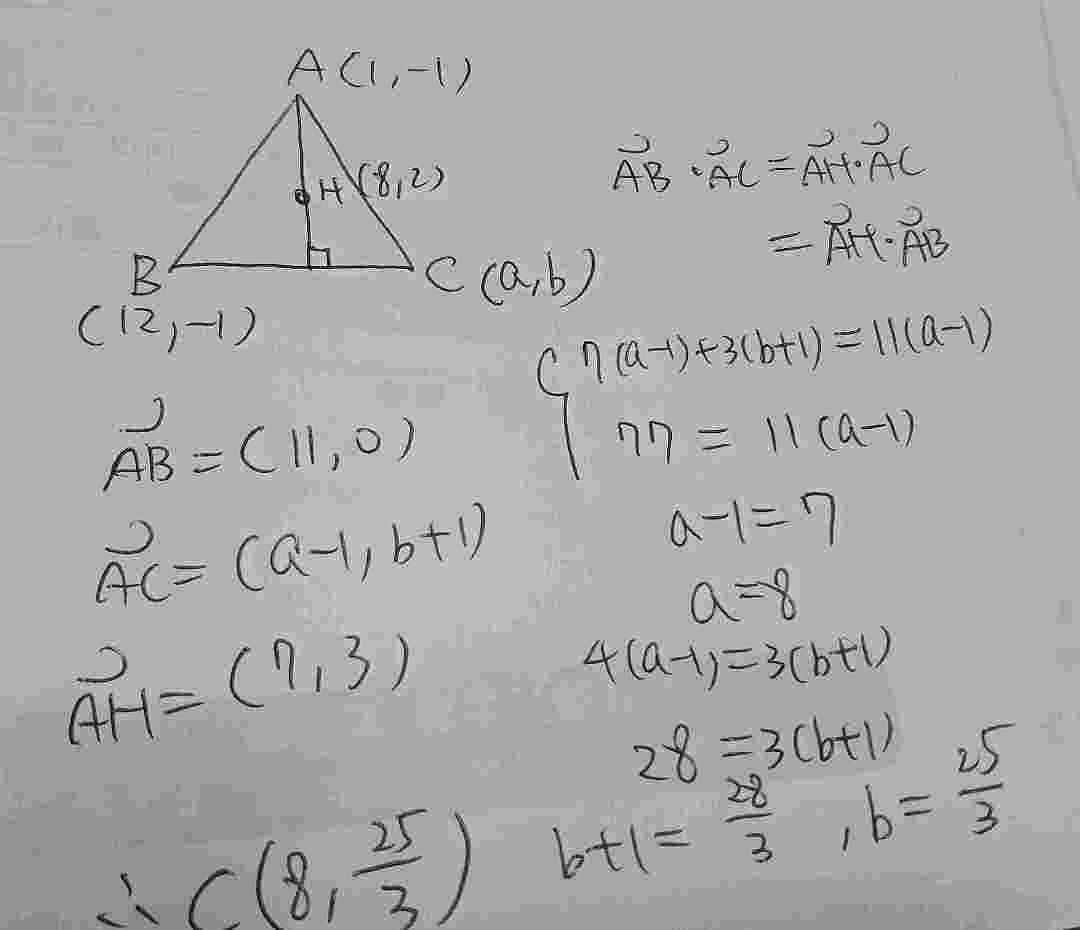 A(1,-1)
H(8,2)
B
(12,-1)
C(a,b)
AB⃗ = (11,0)
AC⃗ = (a-1, b+1)
AH⃗ = (7,3)
AB⃗·AC⃗ = AH⃗·AC⃗
= AH⃗·AB⃗
{ 7(a-1)+3(b+1) = 11(a-1)
77 = 11(a-1)
a-1=7
a=8
4(a-1)=3(b+1)
28=3(b+1)
b+1= 28/3 , b= 25/3
∴ C(8, 25/3)